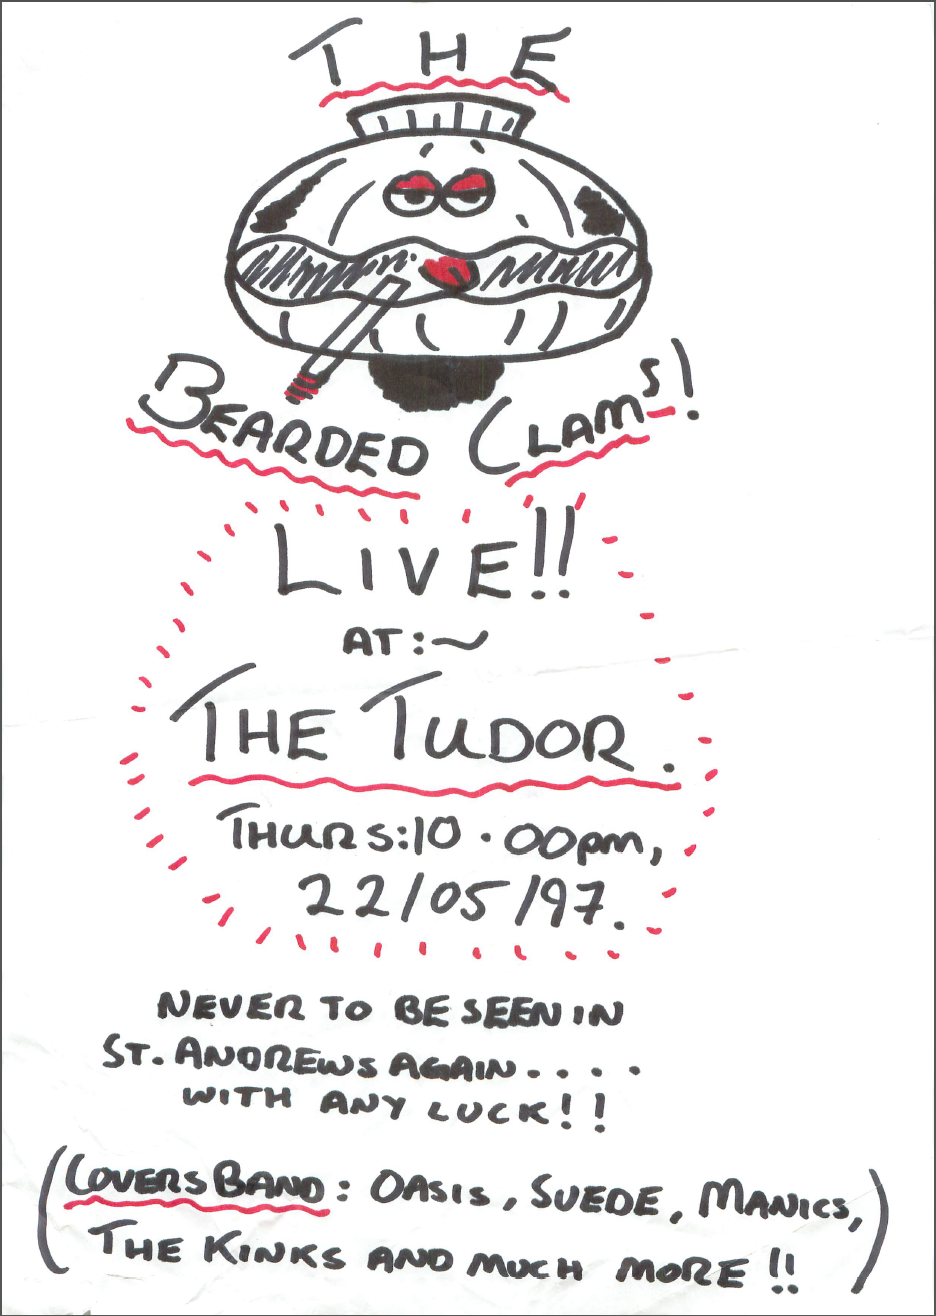 THE
BEARDED CLAMS!
LIVE!!
AT:~
THE TUDOR.
THURS:10.00pm,
22/05/97.
NEVER TO BE SEEN IN
ST. ANDREWS AGAIN....
WITH ANY LUCK!!
(COVERS BAND: OASIS, SUEDE, MANICS,
THE KINKS AND MUCH MORE!!)